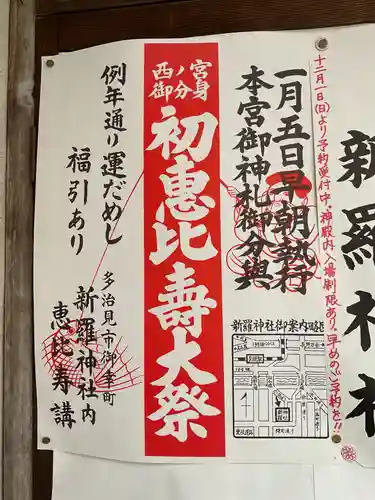 十二月一日(日)より予約受付中。神殿内入場制限あり。早めのご予約を!!
新羅神社
一月五日早朝執行
本宮御神札御分與
新羅神社御案内略図
西ノ宮
御分身
初恵比壽大祭
例年通り運だめし
福引あり
多治見市御幸町
新羅神社内
恵比寿講